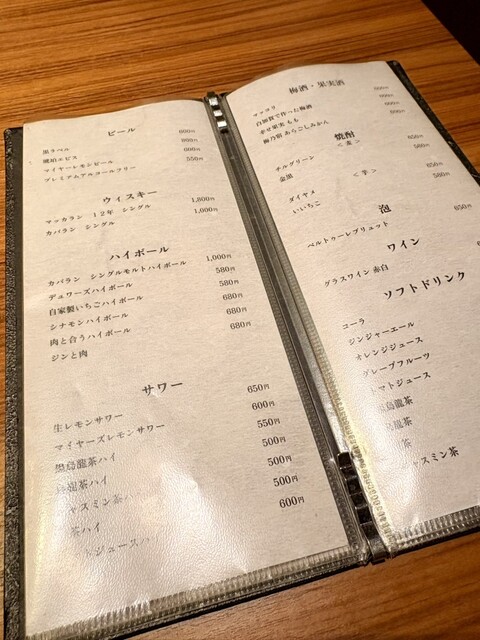 ビール
黒ラベル 600円
琥珀エビス
マイヤーレモンビール 600円
プレミアムアルコールフリー 550円
ウィスキー
マッカラン 12年 シングル 1,800円
カバラン シングル 1,000円
ハイボール
カバラン シングルモルトハイボール 1,000円
デュワーズハイボール 580円
自家製いちごハイボール 580円
シナモンハイボール 680円
肉と合うハイボール 680円
ジンと肉 680円
サワー
生レモンサワー 650円
マイヤーズレモンサワー 600円
黒烏龍茶ハイ 550円
烏龍茶ハイ 500円
ャスミン茶ハイ 500円
茶ハイ 500円
トジュースハイ 600円
梅酒・果実酒
マッコリ
白加賀で作った梅酒 600円
幸せ果実 もも 600円
梅乃宿 あらごしみかん 580円
焼酎
＜麦＞
チルグリーン 650円
金黒 580円
＜芋＞
ダイヤメ 650円
いいちこ 580円
泡
ベルトゥーレブリュット 650円
ワイン
グラスワイン 赤白
ソフトドリンク
コーラ
ジンジャーエール
オレンジジュース
グレープフルーツ
トマトジュース
烏龍茶
龍茶
茶
ャスミン茶